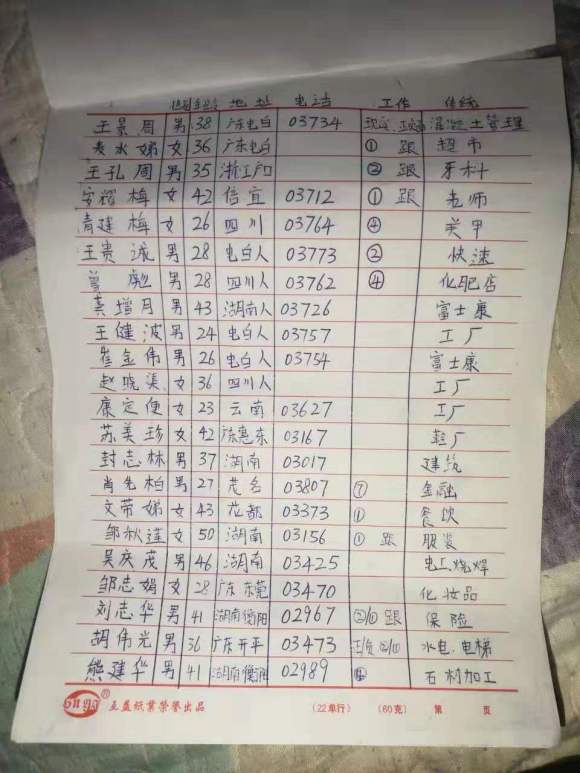 性别 年龄 地址 电话 工作 传统
王景周 男 38 广东电白 03734 混凝土管理
麦水娣 女 36 广东电白 ① 跟 超市
王孔周 男 35 浙江 ② 跟 牙科
梅 女 42 信宜 03712 ① 跟 老师
青建梅 女 26 四川 03764 ④ 美甲
王贵诚 男 28 电白人 03773 ② 快速
曾彪 男 28 四川人 03762 ④ 化肥店
增月 男 43 湖南人 03726 富士康
王健波 男 24 电白人 03757 工厂
崔金伟 男 26 电白人 03754 富士康
赵晓 女 36 四川人 工厂
康定便 女 23 云南 03627 工厂
苏美珍 女 42 广东惠东 03167 鞋厂
封志林 男 37 湖南 03017 建筑
肖先柏 男 27 茂名 03807 ⑦ 金融
文带娣 女 43 花都 03373 ① 餐饮
邹秋莲 女 50 湖南 03156 ① 跟 服装
吴庆茂 男 46 湖南 03425 电工烧焊
邹志娟 女 28 广东东莞 03470 化妆品
刘志华 男 41 湖南衡阳 02967 跟 保险
胡伟光 男 36 广东开平 03473 水电.电梯
熊建华 男 41 湖南衡阳 02989 石材加工
® 立益纸业荣誉出品 (22单行) (60克) 第 页